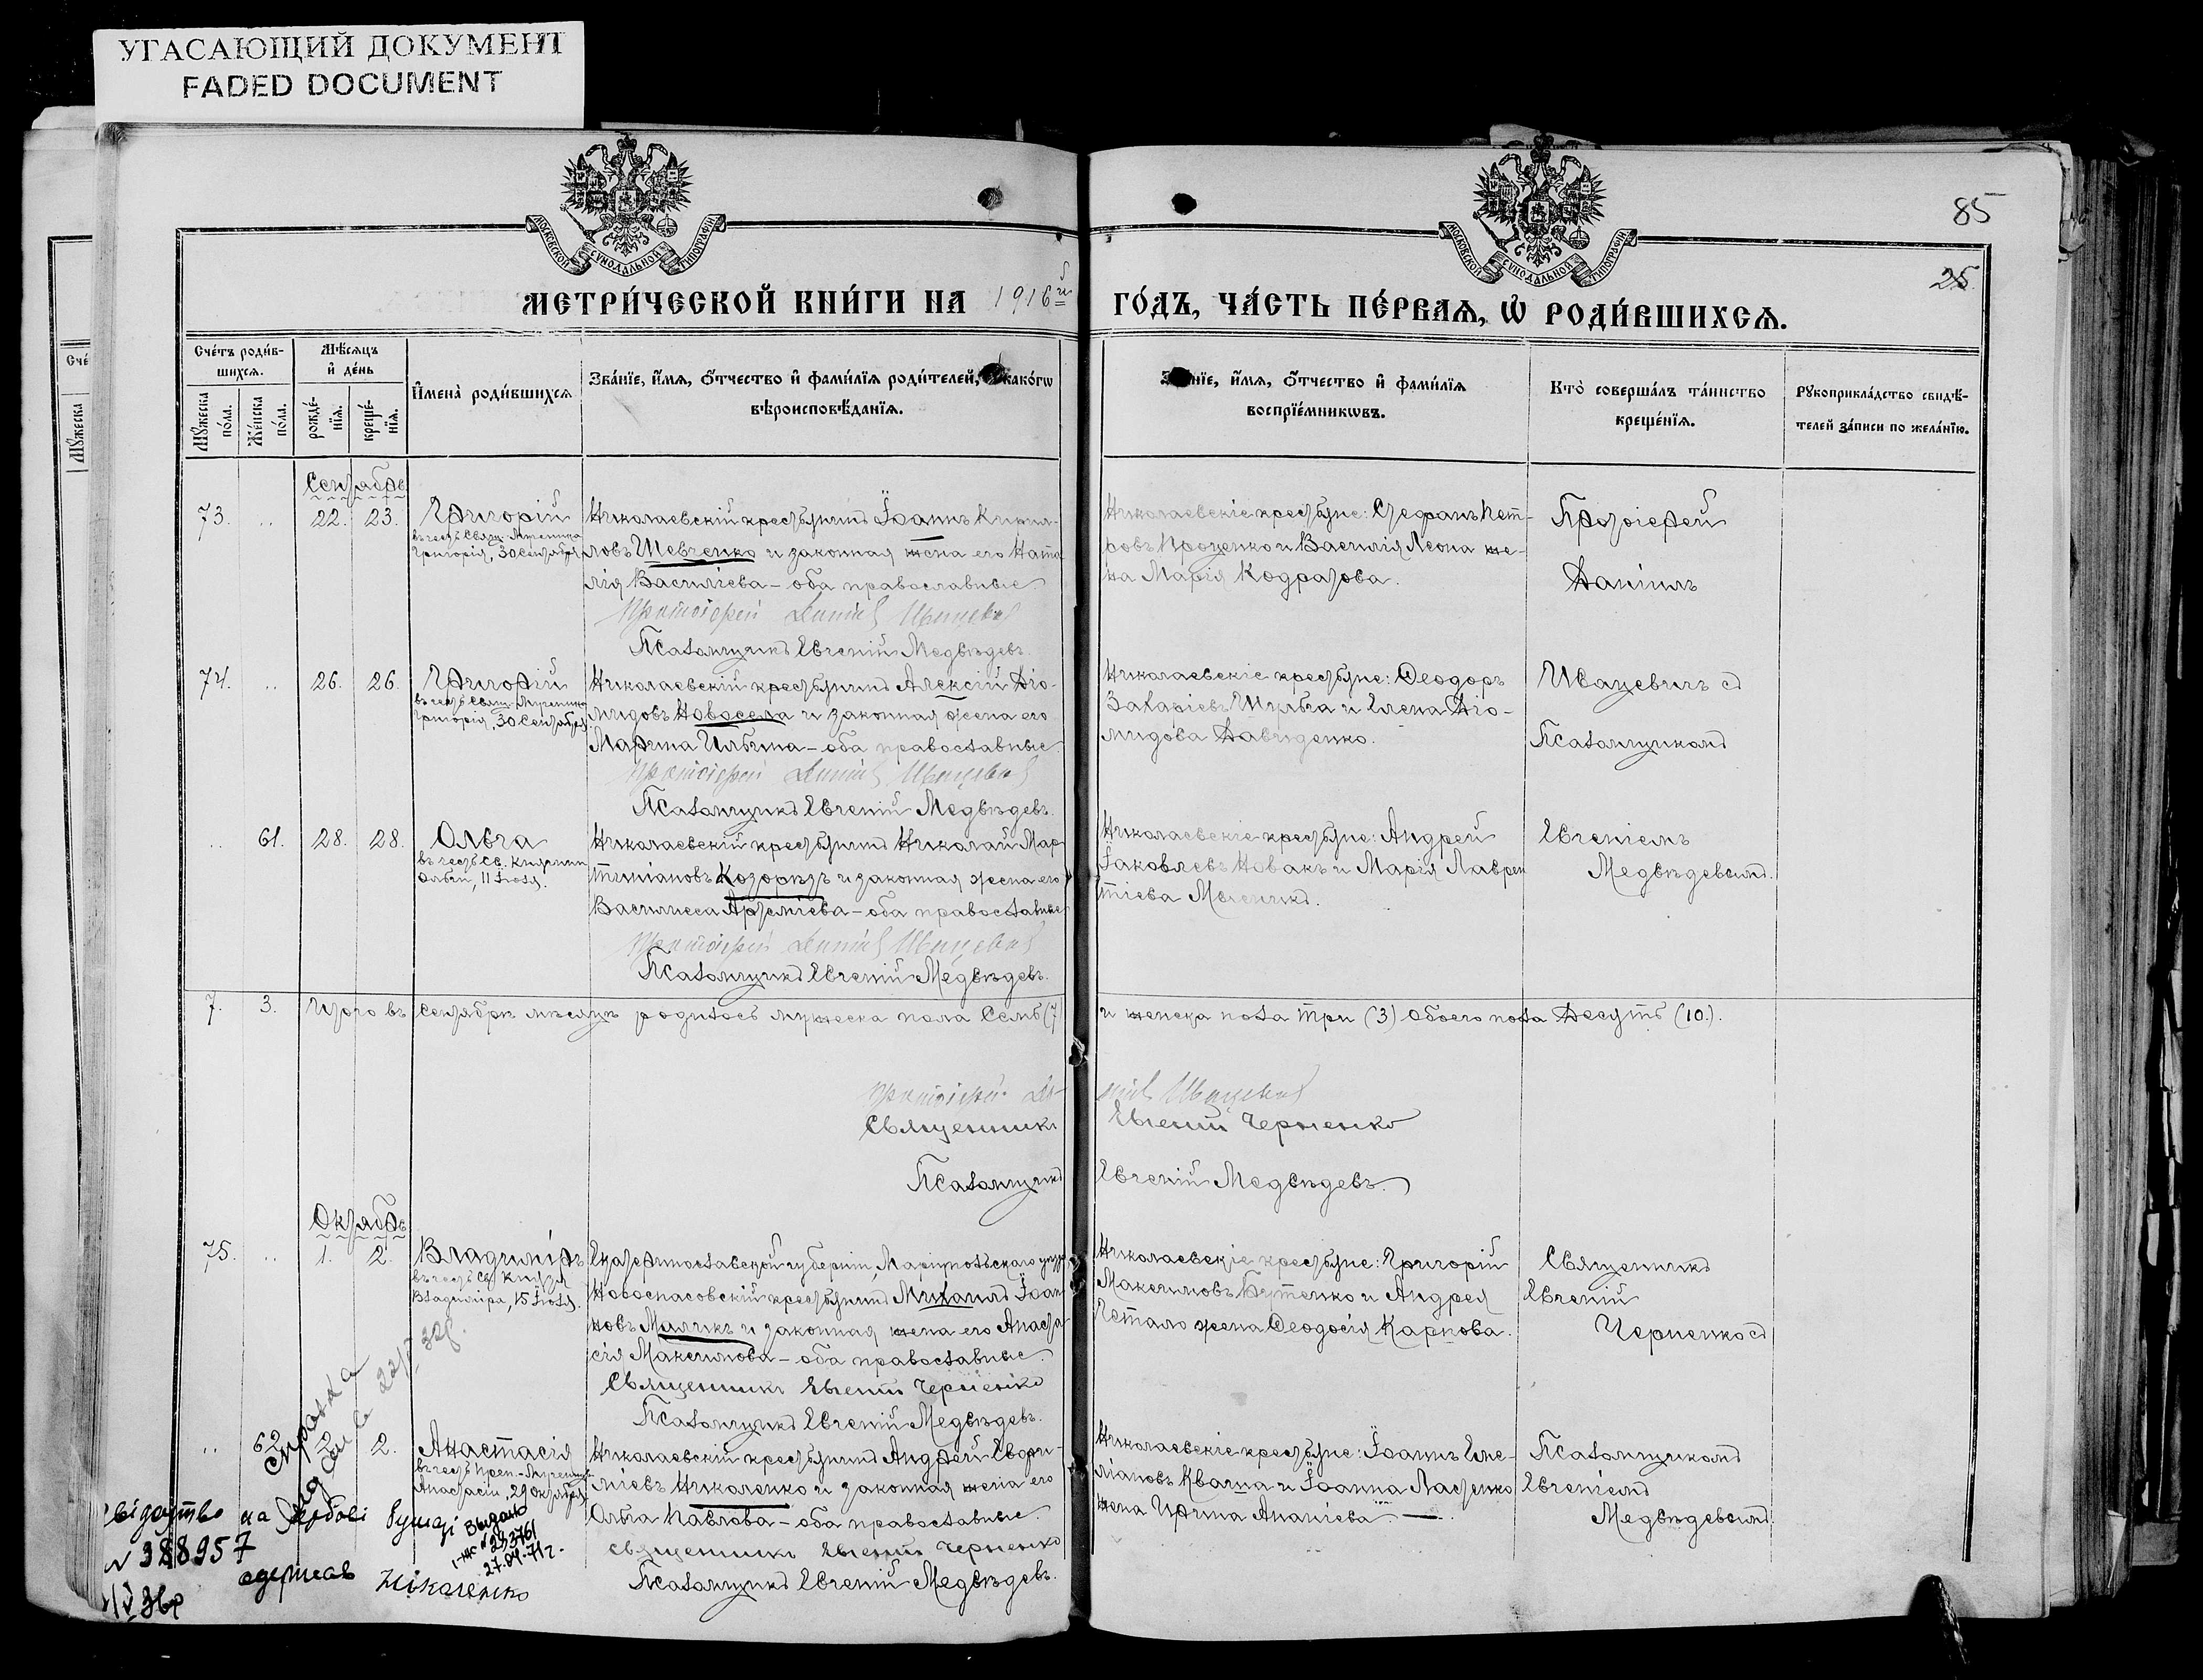 УГАСАЮЩИЙ ДОКУМЕНТ
FADED DOCUMENT
МОСКОВСКОЙ СѴНОДАЛЬНОЙ ТИПОГРАФІИ
МОСКОВСКОЙ СѴНОДАЛЬНОЙ ТИПОГРАФІИ
85
25
МЕТРИ́ЧЕСКОЙ КНИ́ГИ НА 1916й
ГО́ДЪ, ЧА́СТЬ ПЕ́РВАѦ, Ѡ҆ РОДИ́ВШИХСѦ.
Сче́тъ роди́в-
шихсѧ.
Мѣ́сѧцъ
и҆ де́нь
Мꙋ́жеска
по́ла.
Же́нска
по́ла.
рожде́-
нїѧ.
креще́-
нїѧ.
И҆мена̀ роди́вшихсѧ
Зва́нїе, и҆́мѧ, ѻ҆́тчество и҆ фами́лїѧ роди́телей, како́гѡ
вѣроисповѣ́данїѧ.
и҆́мѧ, ѻ҆́тчество и҆ фами́лїѧ
воспрїе́мникѡвъ.
Кто̀ соверша́лъ та́инство
креще́нїѧ.
Рꙋкоприкла́дство свидѣ́-
телей за́писи по жела́нїю.
Сентябрь
73. .. 22. 23. Григорій
въ честь Свящ. Мученика
Григорія, 30 Сентября
Николаевскій крестьянинъ Іоаннъ Кирил-
ловъ Шевченко и законная жена его Ната
лія Василіева – оба православные
Протоіерей Даніилъ Ивацевичъ
Псаломщикъ Евгеній Медвѣдевъ.
Николаевскіе крестьяне: Стефанъ Пет-
ровъ Проценко и Василія Леона же-
на Марія Кодратова.
Протоіерей
Даніилъ
74. .. 26. 26. Григорій
въ честь Свящ. Мученика
Григорія, 30 Сентября
Николаевскій крестьянинъ Алексій Діо-
мидовъ Новосела и законная жена его
Марина Ильина – оба православные
Протоіерей Даніилъ Ивацевичъ
Псаломщикъ Евгеній Медвѣдевъ.
Николаевскіе крестьяне: Ѳеодоръ
Захаріевъ Шульга и Елена Діо-
мидова Давиденко.
Ивацевичъ съ
Псаломщикомъ
.. 61. 28. 28. Ольга
въ честь Св. Княгини
Ольги, 11 Іюля.
Николаевскій крестьянинъ Николай Мар
тиніановъ Козорѣзъ и законная жена его
Василисса Артеміева – оба православные
Протоіерей Даніилъ Ивацевичъ
Псаломщикъ Евгеній Медвѣдевъ.
Николаевскіе крестьяне: Андрей
Іаковлевъ Новакъ и Марія Лаврен
тіева
Евгеніемъ
Медвѣдевымъ.
7. 3. Итого въ Сентябрѣ мѣсяцѣ родилось мужеска пола Семь (7)
и женска пола три (3) Обоего пола Десять (10).
Протоіерей Даніилъ Ивацевичъ
Священникъ Евгеній Черненко
Псаломщикъ Евгеній Медвѣдевъ.
Октябрь
75. .. 1. 2. Владиміръ
въ честь Св. Князя
Владиміра, 15 Іюля.
Екатеринославской губерніи, Маріупольскаго уѣзда,
Новоспасовскій крестьянинъ Михаилъ Іоан
новъ Миличъ и законная жена его Анаста
сія Максимова – оба православные.
Священникъ Евгеній Черненко
Псаломщикъ Евгеній Медвѣдевъ.
Николаевскіе крестьяне: Григорій
Максимовъ Бутенко и Андрея
Четало жена Ѳеодосія Карпова.
Священникъ
Евгеній
Черненко съ
.. 62 2. 2. Анастасія
въ честь Преп.-Мученицы
Анастасіи, 29 Октября
Николаевскій крестьянинъ Андрей Евфи-
міевъ Николенко и законная жена его
Ольга Павлова – оба православные.
Священникъ Евгеній Черненко
Псаломщикъ Евгеній Медвѣдевъ.
Николаевскіе крестьяне: Іоаннъ Еме-
ліановъ Квачка и Іоанна Ластенко
жена Ирина Ананіева. —
Псаломщикомъ
Евгеніемъ
Медвѣдевымъ.
Справка
на бумазі
N 388957
одержав Ніколенко
Выдано
27.04.71 г.